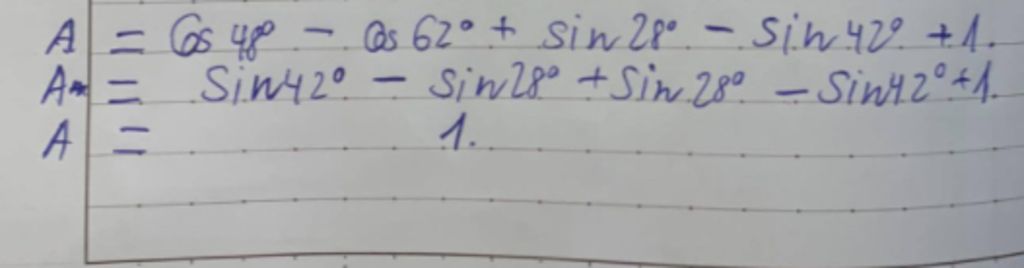 A = Cos 48° - Cos 62° + sin 28° - sin 42° + 1.
A = Sin 42° - Sin 28° + Sin 28° - Sin 42° + 1.
A = 1.